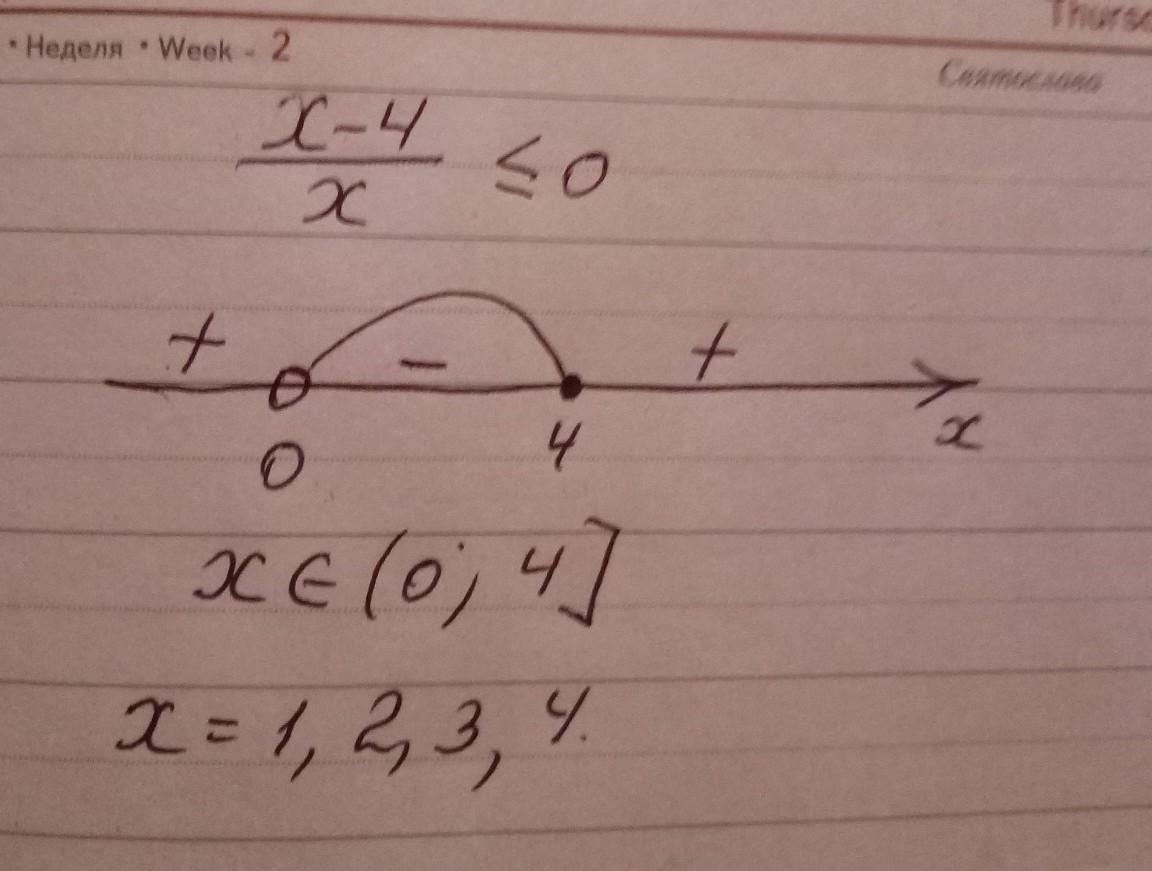 Thurs
• Неделя • Week - 2
Святослава
x-4
x
≤ 0
+ - +
0 4 x
x ∈ (0; 4]
x = 1, 2, 3, 4.